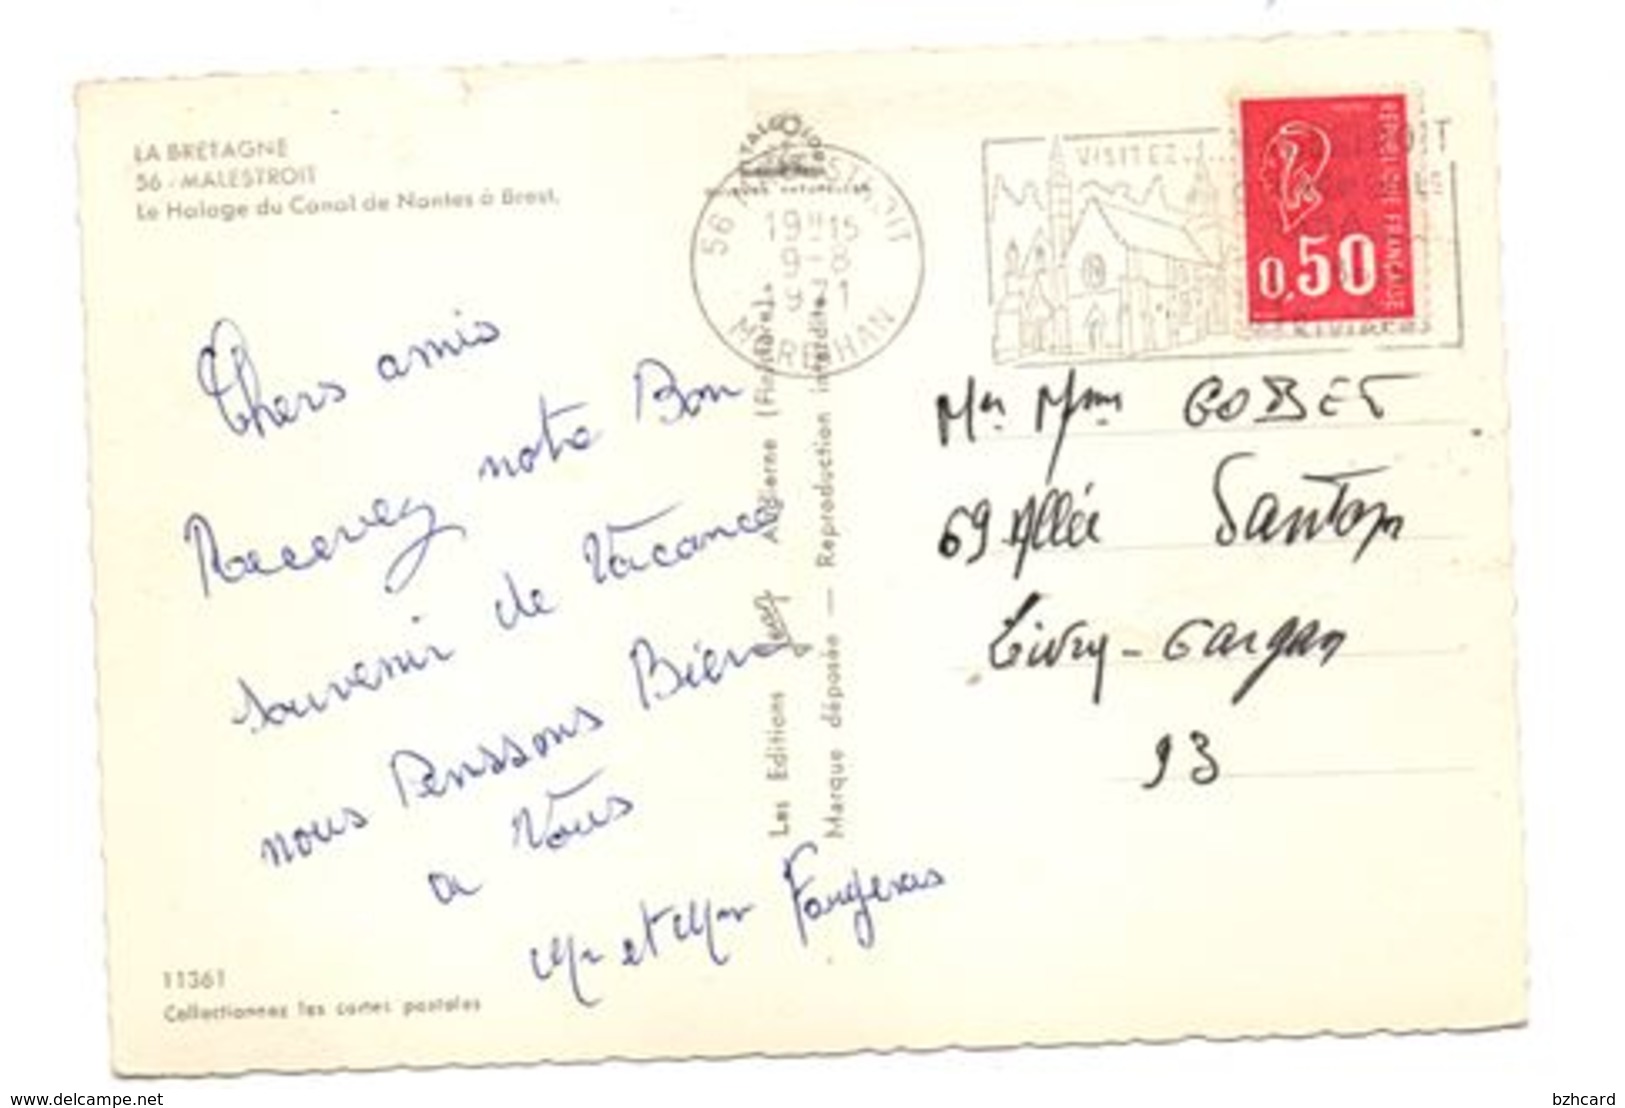 LA BRETAGNE
56 - MALESTROIT
Le Halage du Canal de Nantes à Brest.
Chers amis
Recevez notre Bon
souvenir de Vacances
nous Penssons Bien
a Vous
Mr et Mme Faugeras
11361
Collectionnez les cartes postales
Les Editions Jos Audierne (Finistère).
Marque déposée — Reproduction interdite
56 MALESTROIT
19 H 15
9 - 8
1971
MORBIHAN
VISITEZ...
REPUBLIQUE FRANÇAISE
0,50
Mr Mme GOBBET
69 Allée
Livry-Gargan
93
www.delcampe.net
bzhcard